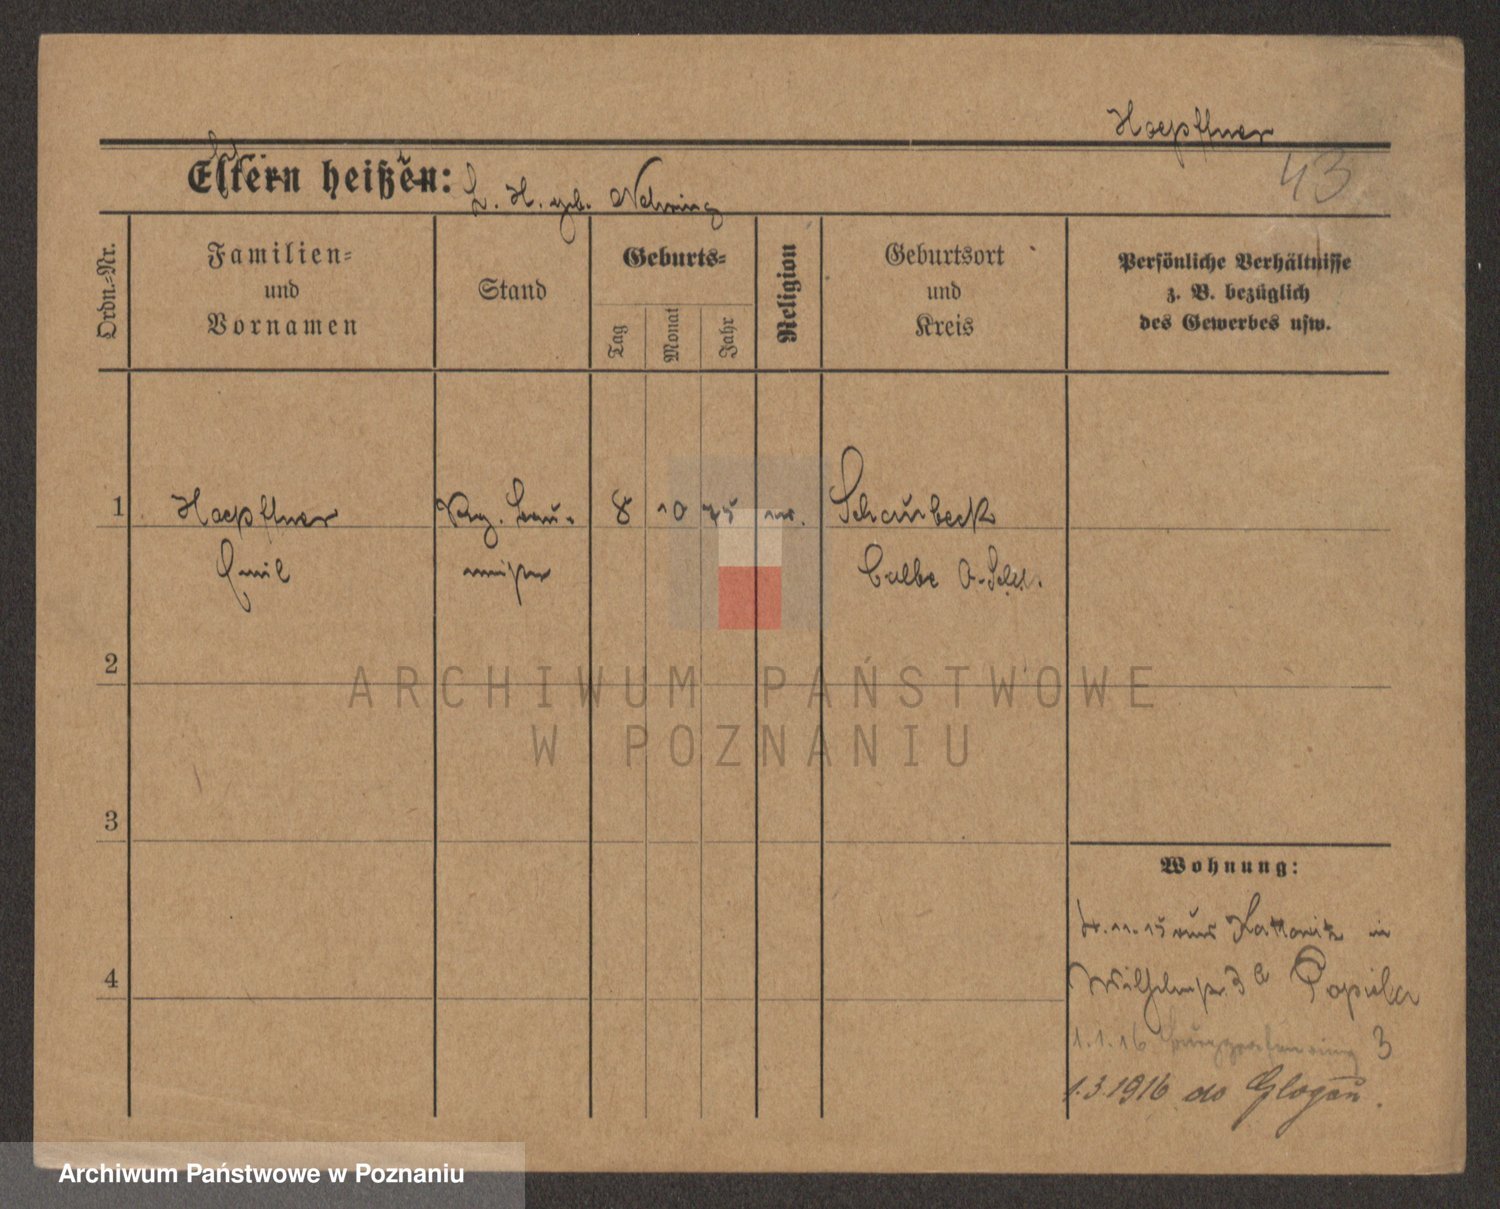 Hoepffner
43
Eltern heißen:
L. H. geb. Nehring
Ordn.-Nr.
Familien-
und
Vornamen
Stand
Geburts-
Tag
Monat
Jahr
Religion
Geburtsort
und
Kreis
Persönliche Verhältnisse
z. B. bezüglich
des Gewerbes usw.
1 Hoepffner Reg. Bau- 8 10 75 Schönebeck
Emil meister Calbe
2
3
4
ARCHIWUM PAŃSTWOWE
W POZNANIU
Wohnung:
11.15 aus Kattowitz in
Wilhelmstr. 3a Popiela
1.1.16 3
1.3.1916 do Glogau.
Archiwum Państwowe w Poznaniu